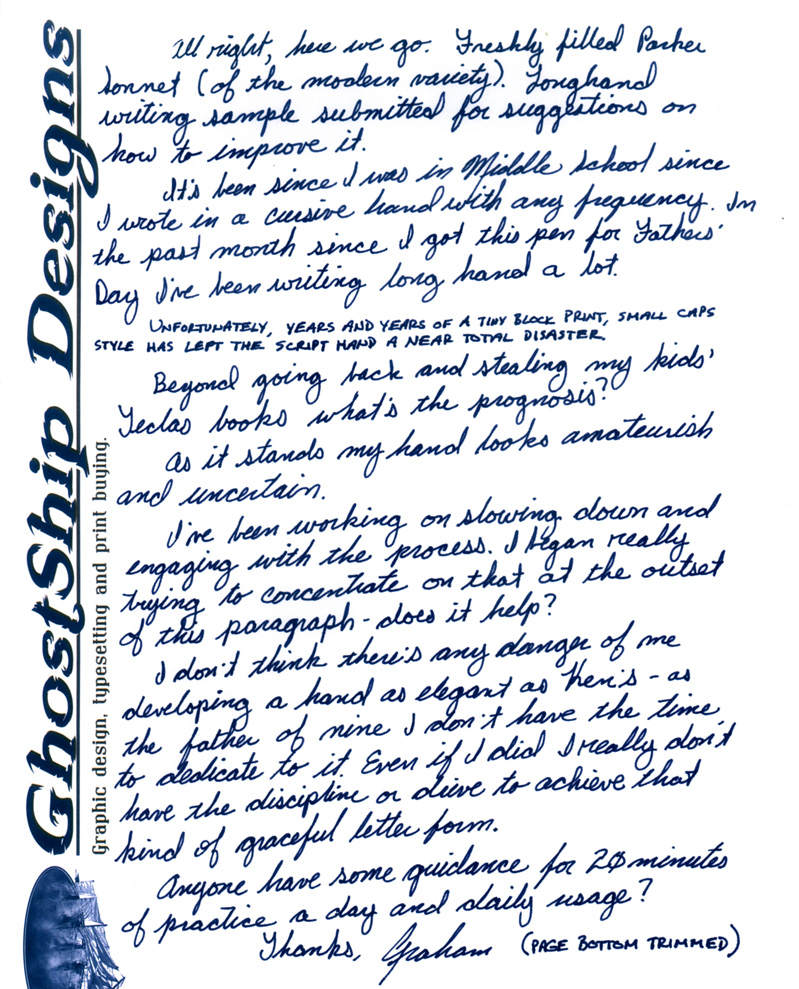 GhostShip Designs
Graphic design, typesetting and print buying.
All right, here we go. Freshly filled Parker
Sonnet (of the modern variety). Longhand
writing sample submitted for suggestions on
how to improve it.
It's been since I was in Middle School since
I wrote in a cursive hand with any frequency. In
the past month since I got this pen for Fathers'
Day I've been writing long hand a lot.
UNFORTUNATELY, YEARS AND YEARS OF A TINY BLOCK PRINT, SMALL CAPS
STYLE HAS LEFT THE SCRIPT HAND A NEAR TOTAL DISASTER.
Beyond going back and stealing my kids'
Seclas books what's the prognosis?
As it stands my hand looks amateurish
and uncertain.
I've been working on slowing down and
engaging with the process. I began really
trying to concentrate on that at the outset
of this paragraph - does it help?
I don't think there's any danger of me
developing a hand as elegant as Ken's - as
the father of nine I don't have the time
to dedicate to it. Even if I did I really don't
have the discipline or drive to achieve that
kind of graceful letter form.
Anyone have some guidance for 20 minutes
of practice a day and daily usage?
Thanks, Graham (PAGE BOTTOM TRIMMED)